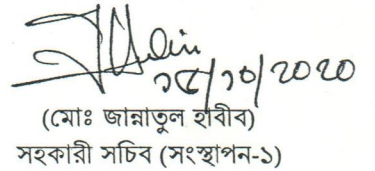 ১৫/১০/২০২০
(মোঃ জান্নাতুল হাবীব)
সহকারী সচিব (সংস্থাপন-১)